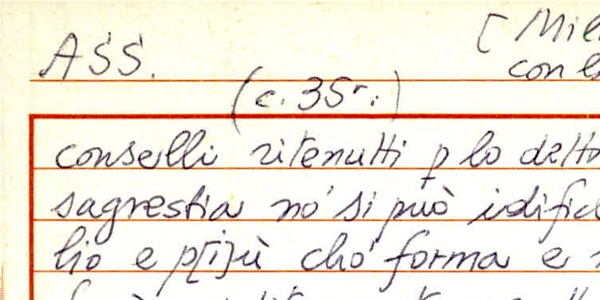 ASS. [Mil
con l
(c. 35r.)
conselli ritenutti p lo detto
sagrestia no' si può idific
lio e p[i]ù cho' forma e